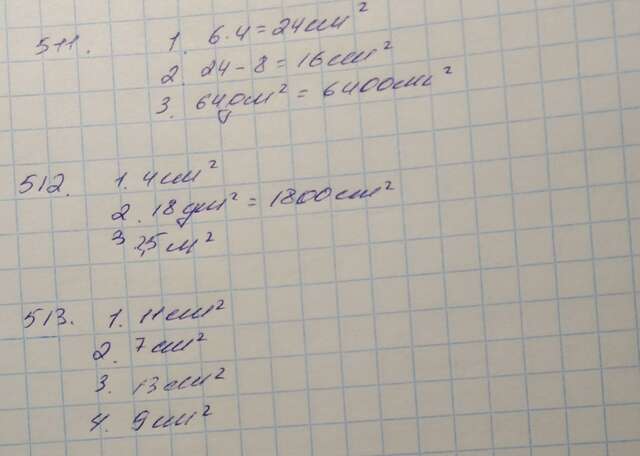 511. 1. 6·4=24см²
2. 24-8=16см²
3. 64дм²=6400см²
512. 1. 4см²
2. 18дм²=1800см²
3 2,5м²
513. 1. 11см²
2. 7см²
3. 13см²
4. 9см²